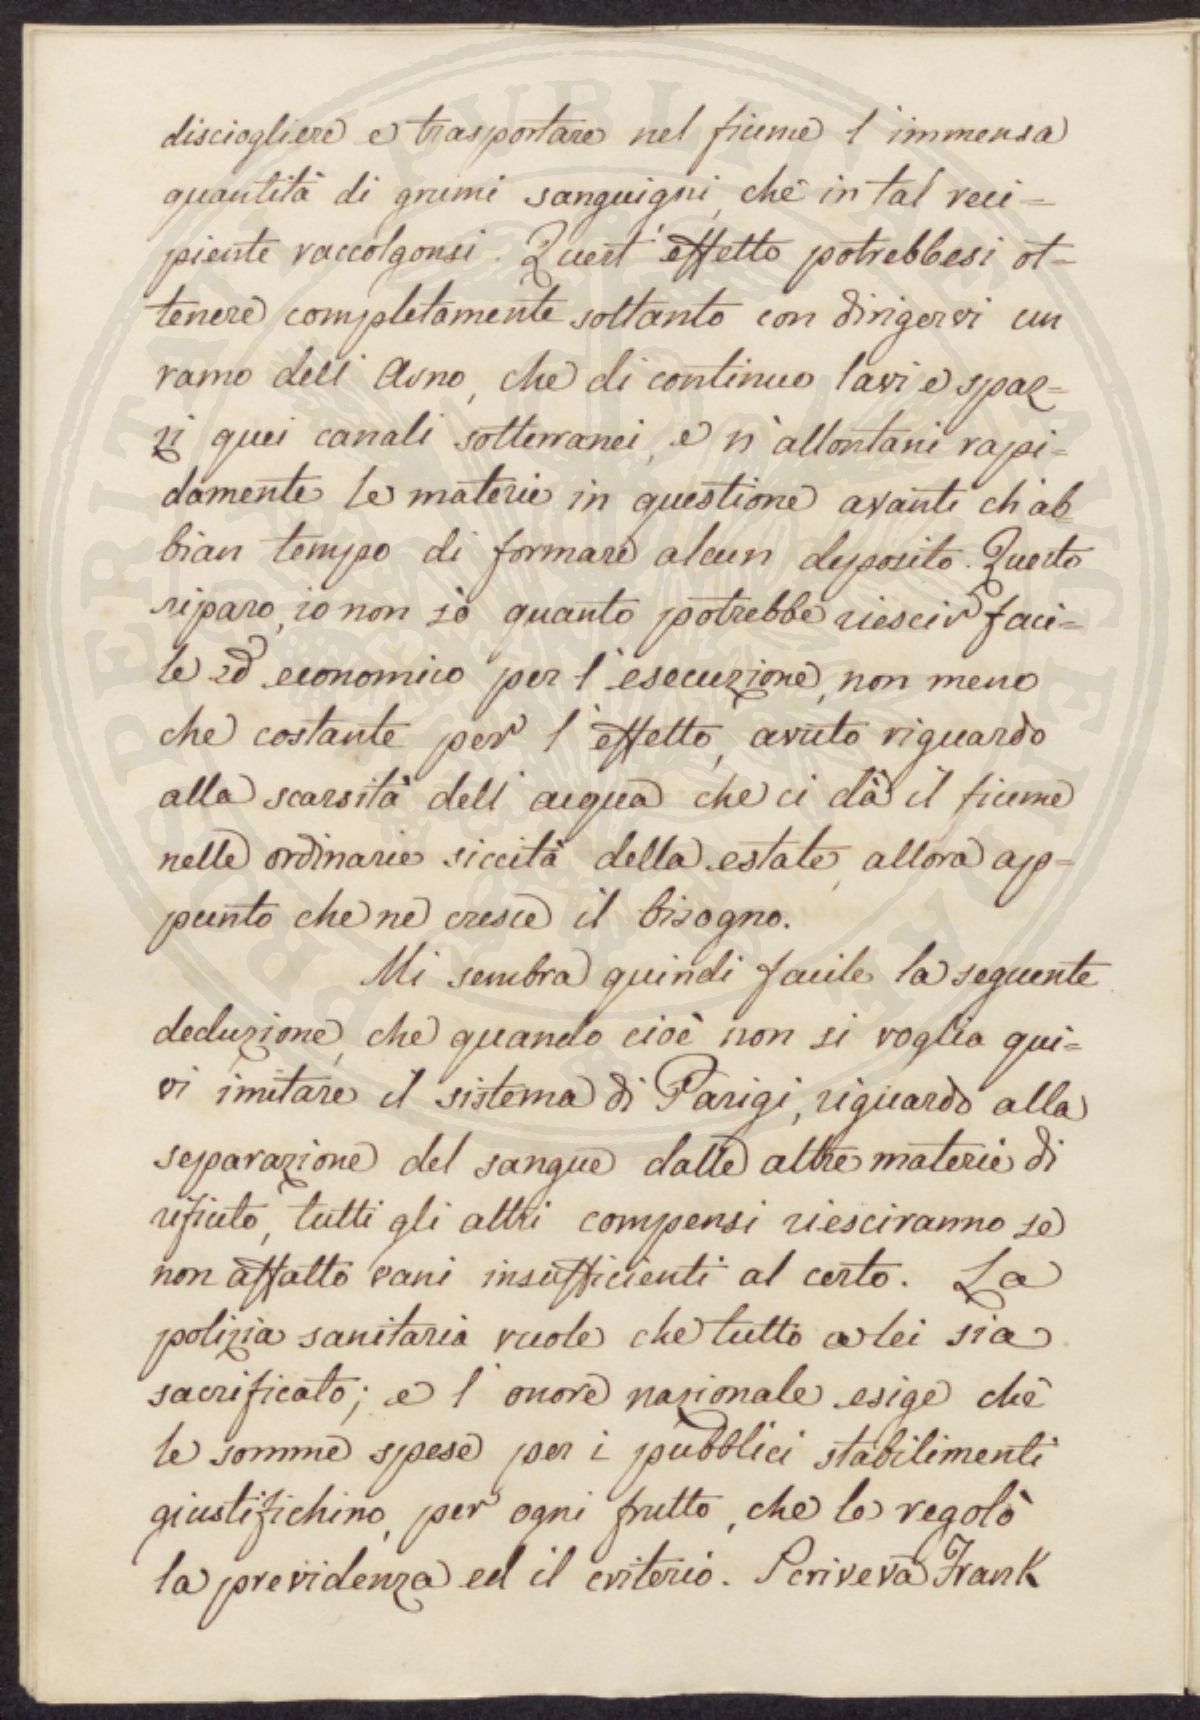 disciogliere e trasportare nel fiume l'immensa
quantità di grumi sanguigni, che in tal reci=
piente raccolgonsi. Quest'effetto potrebbesi ot=
tenere completamente soltanto con dirigervi un
ramo dell'Arno, che di continuo lavi e spaz=
zi quei canali sotterranei, e n'allontani rapi=
damente le materie in questione avanti ch'ab
bian tempo di formare alcun deposito. Questo
riparo, io non sò quanto potrebbe riescir faci=
le ed economico per l'esecuzione, non meno
che costante per l'effetto, avuto riguardo
alla scarsità dell'acqua che ci dà il fiume
nelle ordinarie siccità della estate, allora ap=
punto che ne cresce il bisogno.
Mi sembra quindi facile la seguente
deduzione, che quando cioè non si voglia qui=
vi imitare il sistema di Parigi, riguardo alla
separazione del sangue dalle altre materie di
rifiuto, tutti gli altri compensi riesciranno se
non affatto vani insufficienti al certo. La
polizia sanitaria vuole che tutto a lei sia
sacrificato; e l'onore nazionale esige che
le somme spese per i pubblici stabilimenti
giustifichino, per ogni frutto, che le regolò
la previdenza ed il criterio. Scriveva Frank